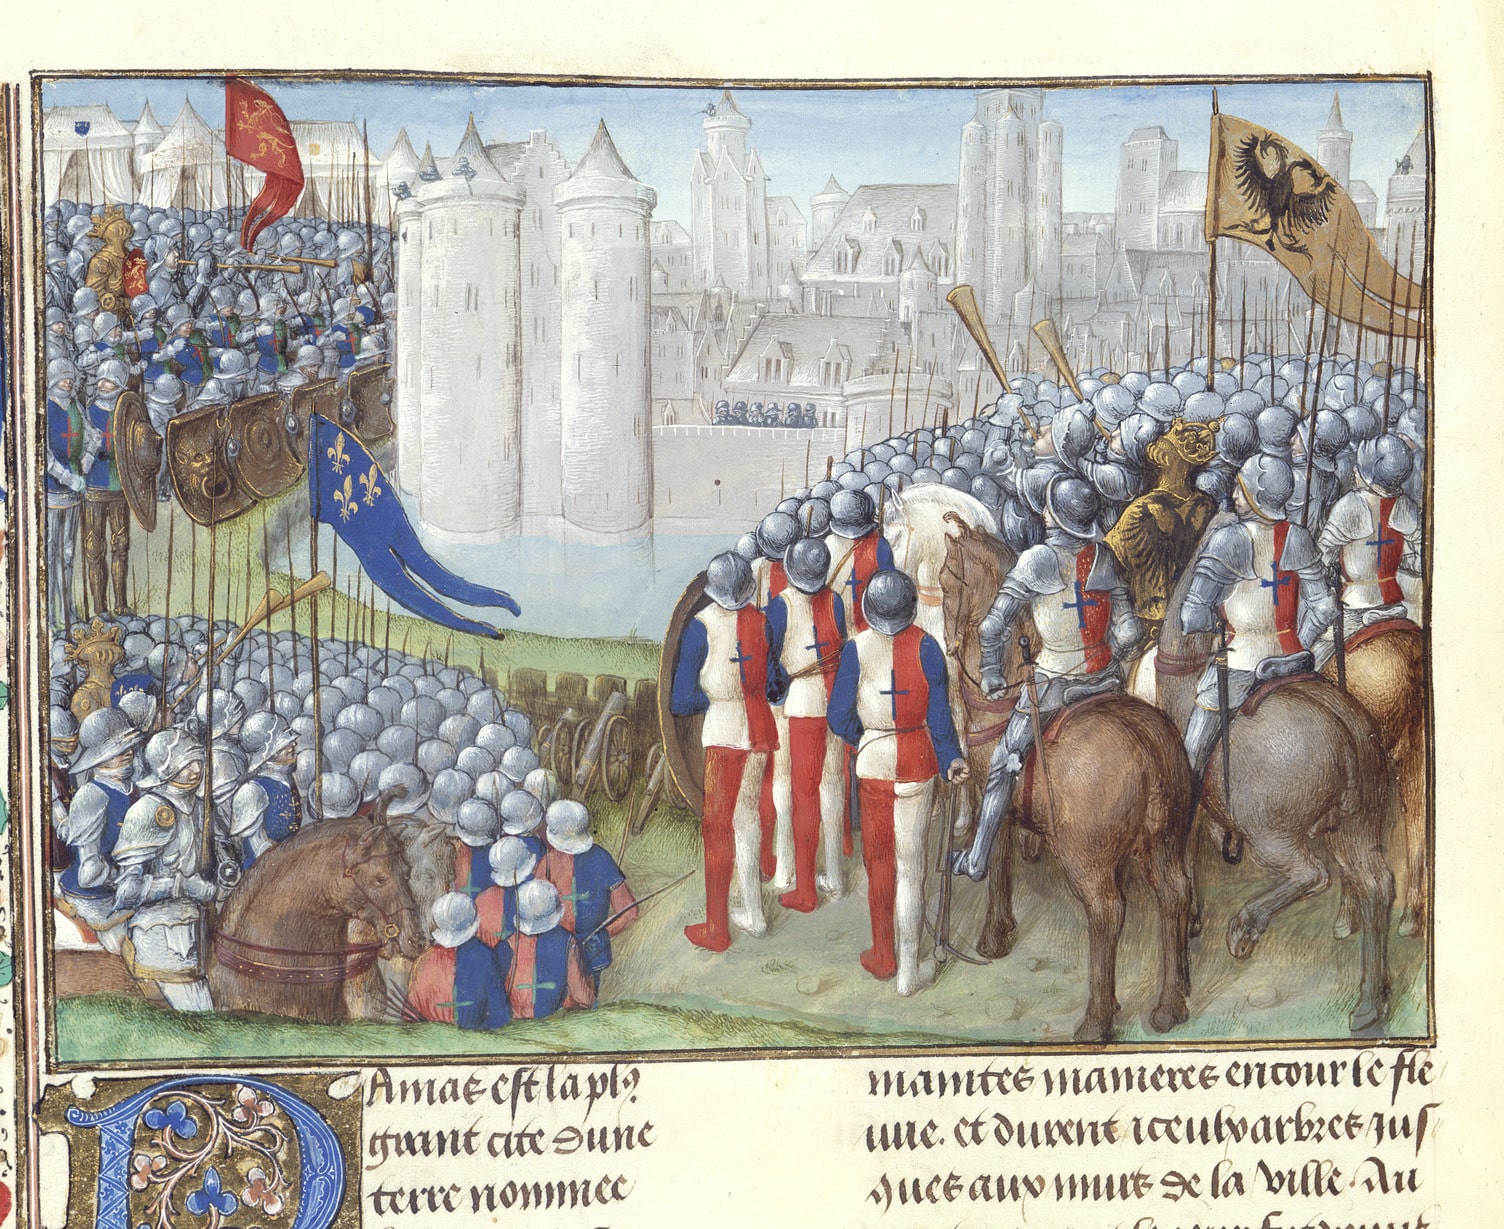 Damas est la pl9
grant cite dune
terre nommee
maintes manieres entour le fle
uue. et durent iceulx arbres Jus
ques aux murs de la ville. Au